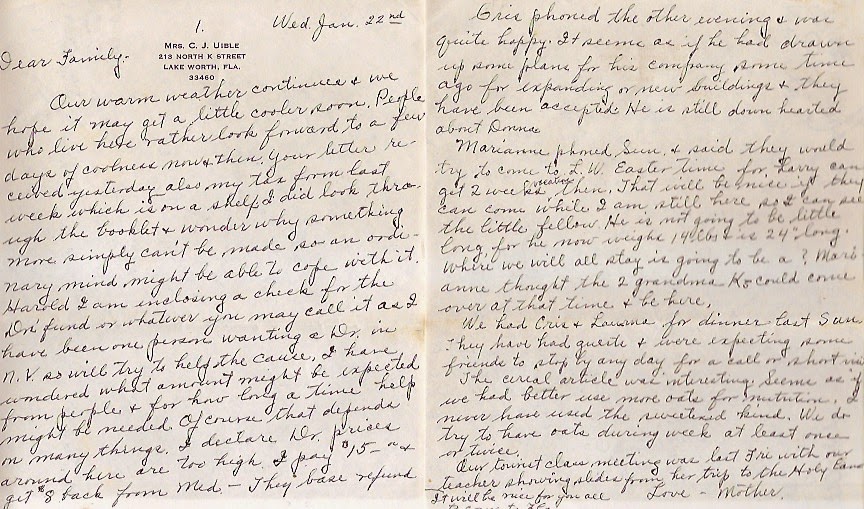 1.
Wed. Jan. 22nd
MRS. C. J. UIBLE
213 NORTH K STREET
LAKE WORTH, FLA.
33460
Dear Family-
Our warm weather continues & we
hope it may get a little cooler soon. People
who live here rather look forward to a few
days of coolness now & then. Your letter re-
ceived yesterday also my tax form last
week which is on a shelf. I did look thro-
ugh the booklet & wonder why something
more simply can't be made so an ordi-
nary mind might be able to cope with it.
Harold I am inclosing a check for the
Dr. fund or whatever you may call it as I
have been one person wanting a Dr. in
N.V. so will try to help the cause. I have
wondered what amount might be expected
from people & for how long a time help
might be needed Of course that depends
on many things. I declare Dr. prices
around here are too high. I pay $15- &
get $8 back from Med- They base refund
Cris phoned the other evening & was
quite happy. It seems as if he had drawn
up some plans for his company some time
ago for expanding or new buildings & they
have been accepted. He is still down hearted
about Donna
Marianne phoned Sun. & said they would
try to come to L.W. Easter time for Larry can
get 2 weeks vacation then. That will be nice if they
can come while I am still here so I can see
the little fellow. He is not going to be little
long, for he now weighs 14 lbs & is 24" long.
Where we will all stay is going to be a ? Mari-
anne thought the 2 grandma Ks could come
over at that time & be here.
We had Cris & for dinner last Sun.
They have had guests & were expecting some
friends to stop by any day for a call or short visit
The cereal article was interesting. Seems as if
we had better use more oats for nutrition. I
never have used the sweetened kind. We do
try to have oats during week at least once
or twice.
Our tourist class meeting was last Fri with our
teacher showing slides from her trip to the Holy Land
It will be nice for you all Love - Mother.